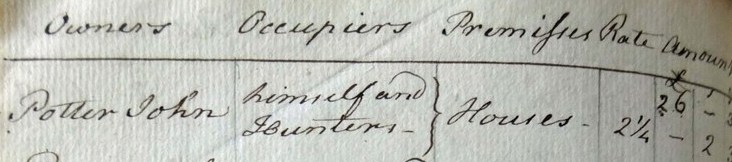 Owners Occupiers Premisses Rate Amount
£
Potter John himself and Hunters - } Houses - 2¼ 26 -
- 2